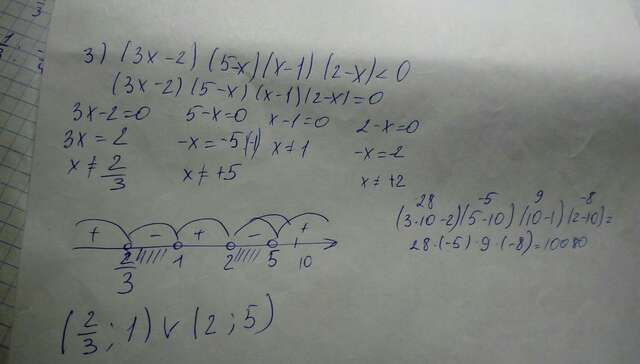 3) (3x-2) (5-x) (x-1) (2-x) < 0
(3x-2) (5-x) (x-1) (2-x) = 0
3x-2=0 5-x=0 x-1=0 2-x=0
3x=2 -x=-5|(-1) x≠1 -x=-2
x≠2/3 x≠+5 x≠+2
28 -5 9 -8
(3·10-2)(5-10)(10-1)(2-10)=
28·(-5)·9·(-8)=10080
+ - + - +
2/3 1 2 5 10
(2/3; 1) v (2; 5)